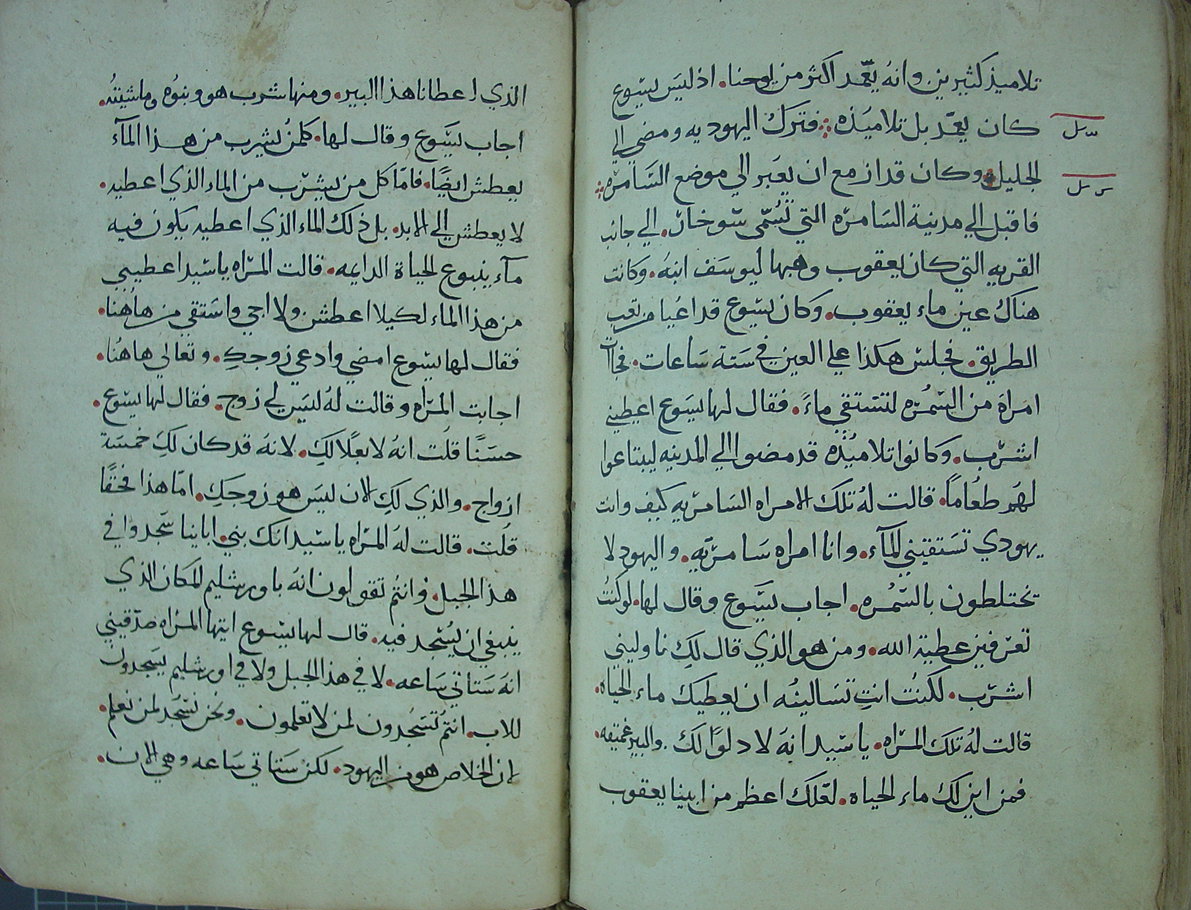 تلاميذ كثيرين وانه يعّمد اكثر من يوحنا. اذ ليس يسوع
كان يعمد بل تلاميذه. فترك اليهوديه ومضى الى
الجليل. وكان قد ازمع ان يعبر الى موضع السامره
فاقبل الى مدينة السامره التي تسمى سوخار. الى جانب
القريه التي كان يعقوب وهبها ليوسف ابنه. وكانت
هناك عين ماء يعقوب. وكان يسوع قد اعيا من تعب
الطريق. فجلس هكذا على العين في ستة ساعات. فجات
امراة من السمره لتستقي ماءً. فقال لها يسوع اعطيني
اشرب. وكانوا تلاميذه قد مضوا الى المدينه ليبتاعوا
لهم طعاماً. قالت له تلك الامراه السامريه كيف وانت
يهودي تستقيني المآء. وانا امراه سامريه. واليهود لا
يختلطون بالسمره. اجاب يسوع وقال لها. لو كنت
تعرفين عطية الله. ومن هو الذي قال لكِ ناوليني
اشرب. لكنت انتِ تساليه ان يعطيك ماء الحياه.
قالت له تلك المراه. يا سيد انه لا دلوًا لك. والبير عميقه.
فمن اين لك ماء الحياه. لعلك اعظم من ابينا يعقوب
الذي اعطانا هذا البير. ومنها شرب هو وبنوه وماشيته.
اجاب يسوع وقال لها. كلمن يشرب من هذا المآء
يعطش ايضًا. فامّا كل من يشرب من الماء الذي اعطيه.
لا يعطش الى الابد. بل ذلك الماء الذي اعطيه يكون فيه
مآء ينبوع لحياة الدايمه. قالت المراه يا سيد اعطيني
من هذا الماء لكيلا اعطش ولا اجي واستقي من هاهنا.
فقال لها يسوع امضي وادعي زوجكِ. وتعالي هاهنا.
اجابت المراه وقالت له ليس لي زوج. فقال لها يسوع.
حسنًا قلت انه لا بعلًا لكِ. لانه قد كان لكِ خمسة
ازواج. والذي لكِ الان ليس هو زوجكِ. امّا هذا فحقًا
قلت. قالت له المراه يا سيد انك نبي. اباينا سجدوا في
هذا الجبل. وانتم تقولون انه باورشليم المكان الذي
ينبغي ان يسجد فيه. قال لها يسوع ايتها المراه صدقيني
انه ستاتي ساعه. لا في هذا الجبل ولا في اورشليم يسجدون
للاب. انتم تسجدون لمن لا تعلمون. ونحن نسجد لمن نعلم.
لان الخلاص هو من اليهود. لكن ستاتي ساعه وهي الان.